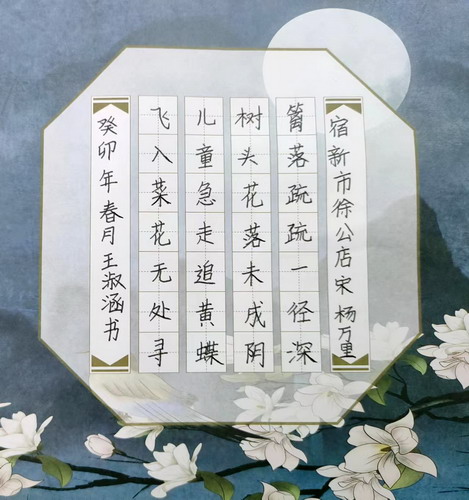 宿新市徐公店 宋 杨万里
篱落疏疏一径深
树头花落未成阴
儿童急走追黄蝶
飞入菜花无处寻
癸卯年春月王淑涵书